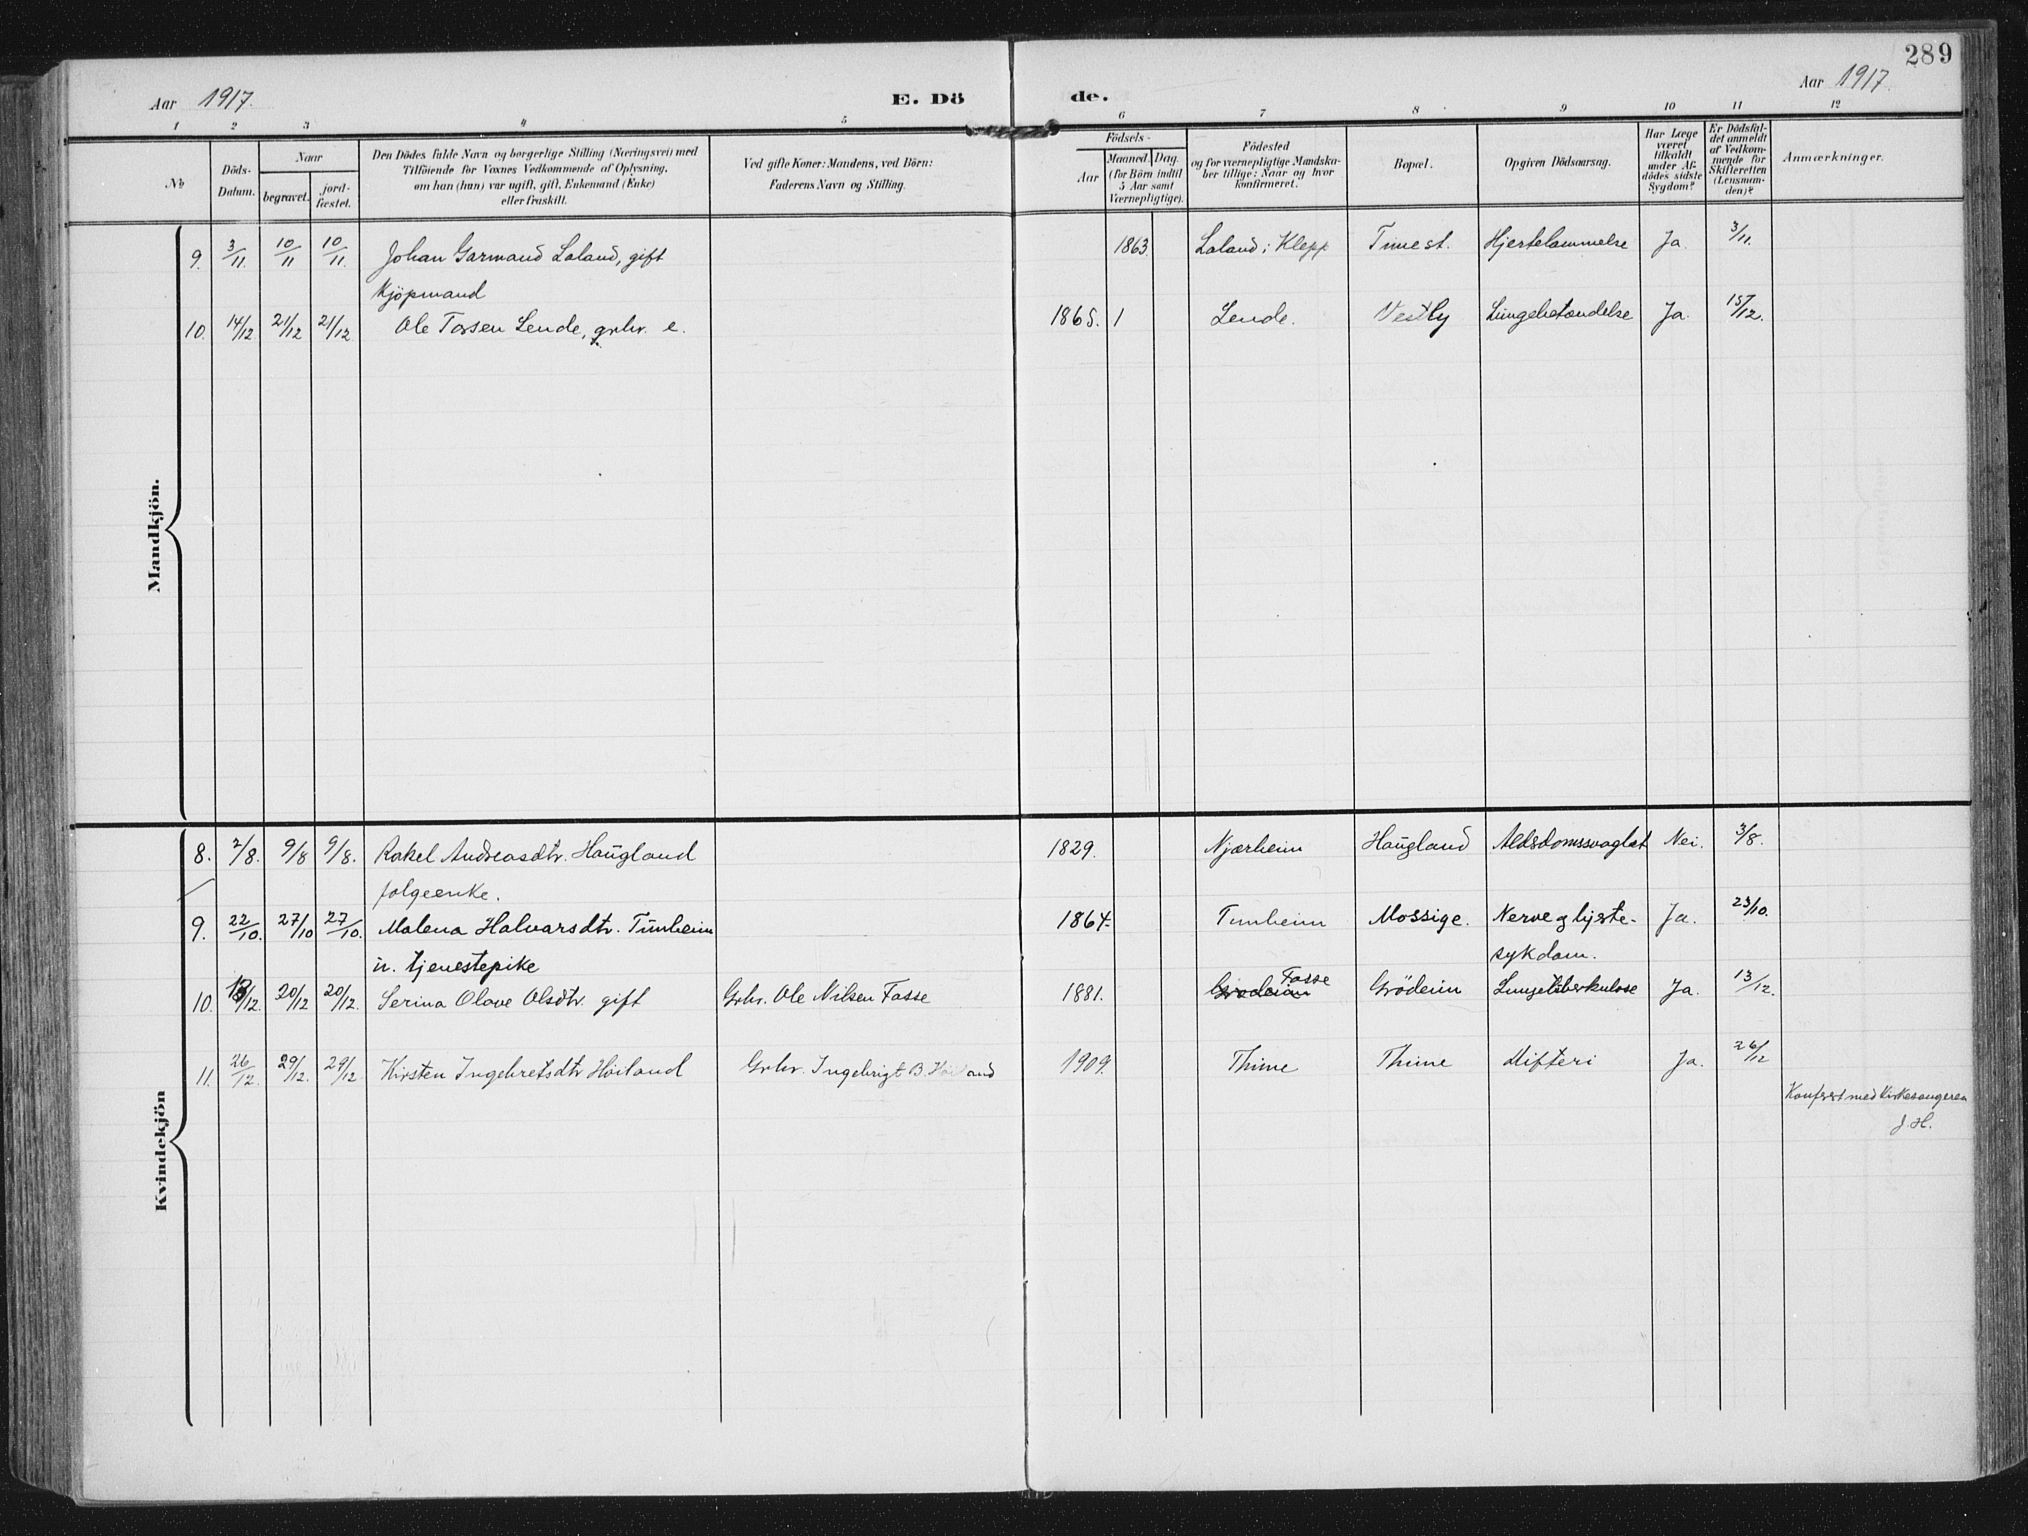 289
Aar 1917. E. Dö de. Aar 1917.
1 2 3 4 5 6 7 8 9 10 11 12
No
Döds-Datum.
Naar
begravet.
jord-fæstet.
Den Dödes fulde Navn og borgerlige Stilling (Næringsvei) med
Tilföiende for Voxnes Vedkommende af Oplysning,
om han (hun) var ugift, gift, Enkemand (Enke)
eller fraskilt.
Ved gifte Koner: Mandens, ved Börn:
Faderens Navn og Stilling.
Födsels-
Aar
Maaned. Dag.
(for Börn indtil
5 Aar samt
Værnepligtige).
Födested
og for værnepligtige Mandska-
ber tillige: Naar og hvor
konfirmeret.
Bopæl.
Opgiven Dödsaarsag.
Har Læge
været
tilkaldt
under Af-
dödes sidste
Sygdom?
Er Dödsfal-
det anmeldt
af Vedkom-
mende for
Skifteretten
(Lensman-
den)?
Anmærkninger.
Mandkjön.
9. 3/11. 10/11 10/11. Johan Garmand Laland, gift 1863. Laland i Klepp Time st. Hjertelammelse Ja. 3/11.
Kjöpmand
10. 14/12. 21/12 21/12 Ole Torsen Lende, grbr. e. 1865. 1 Lende. Vestly Lungebetændelse Ja. 15/12.
Kvindekjön
8. 2/8. 9/8 9/8. Rakel Andreasdtr. Haugland 1829. Njærheim Haugland Aldsdomssvaghet Nei. 3/8.
folgeenke.
9. 22/10. 27/10 27/10. Malena Halvarsdtr. Tunheim 1864. Tunheim Mossige. Nerve og hjerte- Ja. 23/10.
u. tjenestepike sykdom.
10. 13/12. 20/12 20/12. Serina Olave Olsdtr. gift Grbr. Ole Nilsen Fosse 1881. Grødeim Fosse Grödeim Lungetuberkulose Ja. 13/12.
11. 26/12. 29/12. 29/12 Kirsten Ingebretsdtr Höiland Grbr. Ingebrigt B. Höiland 1909. Thime Thime Difteri Ja. 26/12
Konferert med Kirkesangeren
J. H.